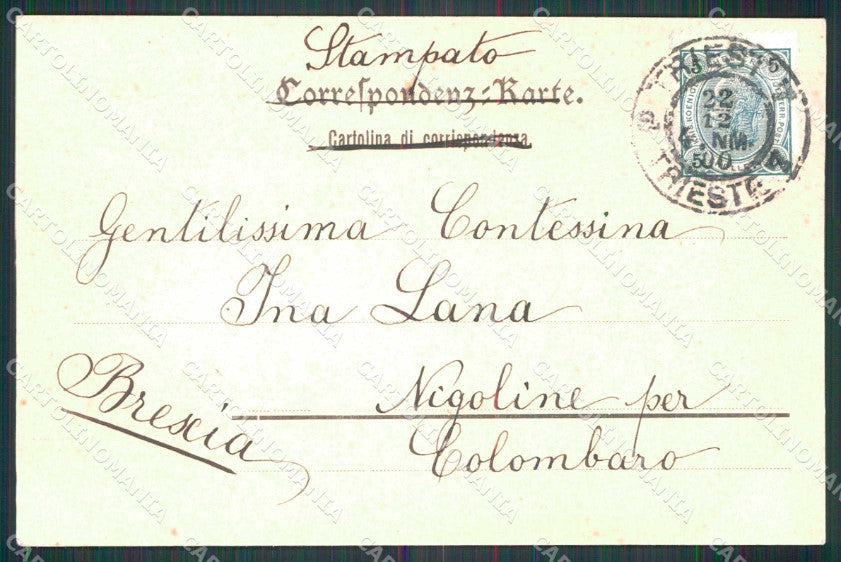 Stampato
Correspondenz-Karte.
Cartolina di corrispondenza
TRIEST
22
12
NM.
00
TRIESTE 2
Gentilissima Contessina
Ina Lana
Nigoline per
Colombaro
Brescia
CARTOLINOMANIA